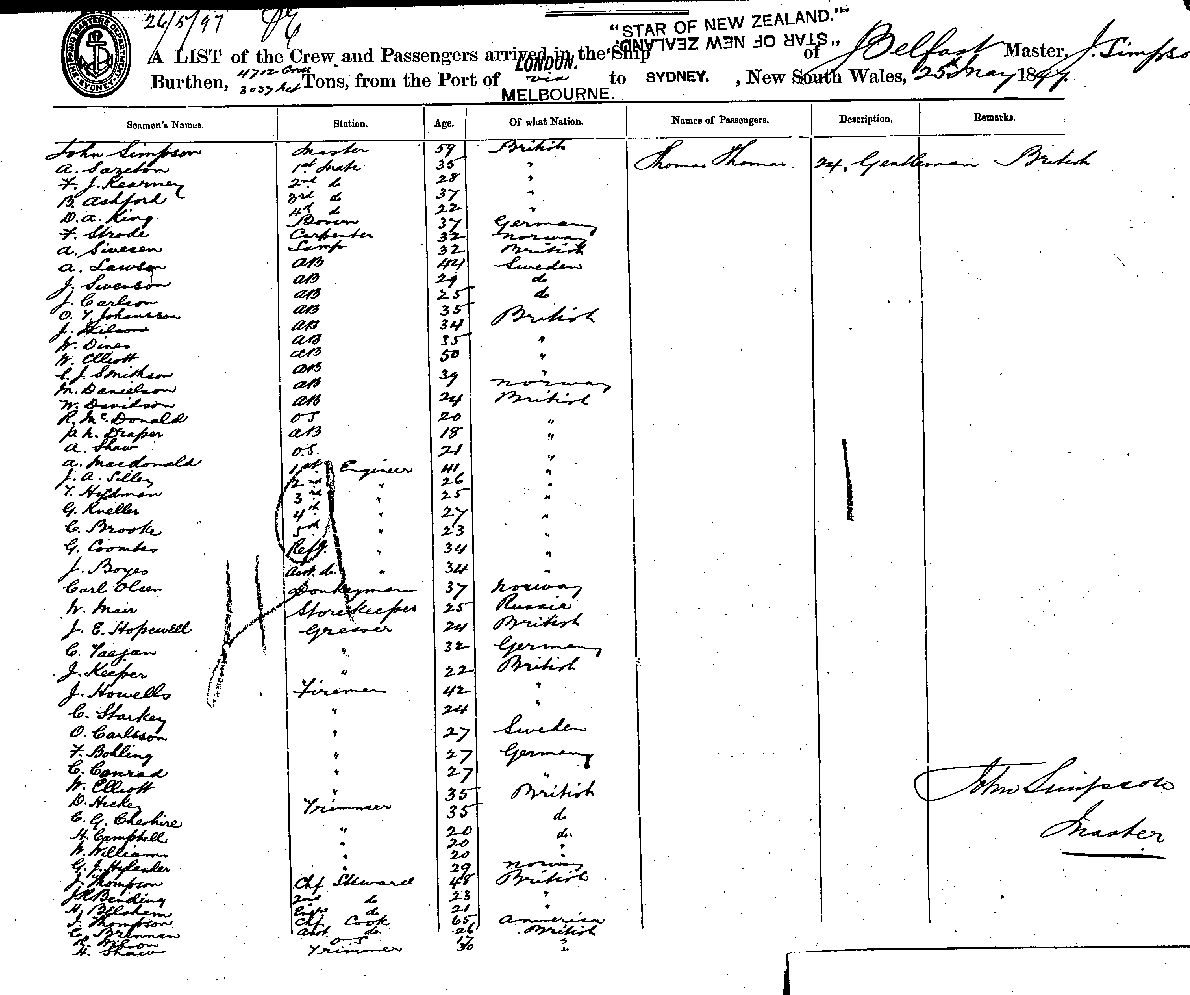 26/5/97
"STAR OF NEW ZEALAND."
"STAR OF NEW ZEALAND."
A LIST of the Crew and Passengers arrived in the Ship of Belfast Master, J. Simpso
Burthen, 4712 Tons, from the Port of LONDON. via MELBOURNE. to SYDNEY. , New South Wales, 25 May 1897
Seamen's Names. Station. Age. Of what Nation. Names of Passengers. Description. Remarks.
John Simpson Master 59 British Thomas Thomas 24, Gentleman British
A. Sazeton 1st Mate 35 "
F. J. Kearney 2nd do 28 "
B. Ashford 3rd do 37 "
D. A. King 4th do 22 "
F. Strode Bosun 37 Germany
A. Sivesen Carpenter 32 Norway
A. Lawson Lamp 32 British
J. Svenson AB 44 Sweden
J. Carlson AB 29 do
O. T. Johansson AB 25 do
J. Wilson AB 35 British
W. Dines AB 34 "
W. Elliott AB 35 "
C. J. Smithson AB 50 "
M. Danielson AB 39 Norway
W. Davidson AB 24 British
R. McDonald OS 20 "
Draper AB 18 "
A. Shaw OS 21 "
A. Macdonald 1st Engineer 41 "
J. A. Silley 2nd " 26 "
T. Hyдman 3rd " 25 "
G. Kneller 4th " 27 "
C. Brooke 5th " 23 "
G. Coombs Refg. " 34 "
J. Boyes Asst do. " 34 "
Carl Olsen Donkeyman 37 Norway
W. Mair Storekeeper 25 Russia
J. E. Hopewell Greaser 24 British
C. Taafan " 32 Germany
J. Keeper " 22 British
J. Howells Firemen 42 "
C. Starkey " 24 "
O. Carlsson " 27 Sweden
F. Bohling " 27 Germany
C. Conrad " 27 "
W. Elliott " 35 British
D. Hickey Trimmer 35 do
C. G. Cheshire " 20 do
H. Campbell " 20 "
W. William " 20 "
G. J. Hylander " 29 Norway
J. Thompson Chf Steward 48 British
J R Bending 2nd do 23 "
H. Belsham Engrs do 21 "
J. Thompson Chf Cook 65 America
C. Brennan Asst do 26 British
R. Wilson OS 17 "
H. Shaw Trimmer 30 "
John Simpson
Master